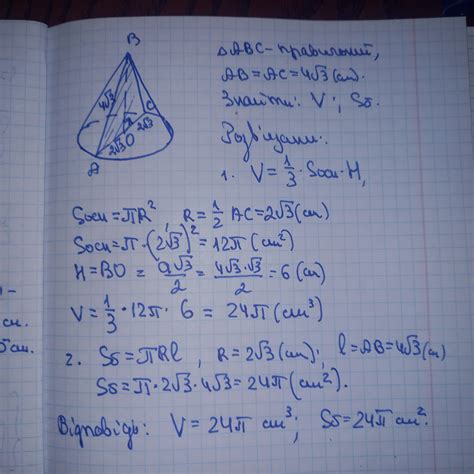 B
△ABC - правильний,
AB = AC = 4√3 (см).
4√3
Знайти: V; Sб
C
2√3
O
2√3
A
Розв'язання:
1. V = 1/3 · Sосн · H,
Sосн = πR² R = 1/2 AC = 2√3 (см)
Sосн = π · (2√3)² = 12π (см²)
H = BO = a√3/2 = 4√3·√3/2 = 6 (см)
V = 1/3 · 12π · 6 = 24π (см³)
см.
см.
2. Sб = πRl, R = 2√3 (см); l = AB = 4√3 (см)
Sб = π · 2√3 · 4√3 = 24π (см²).
Відповідь: V = 24π см³; Sб = 24π см².